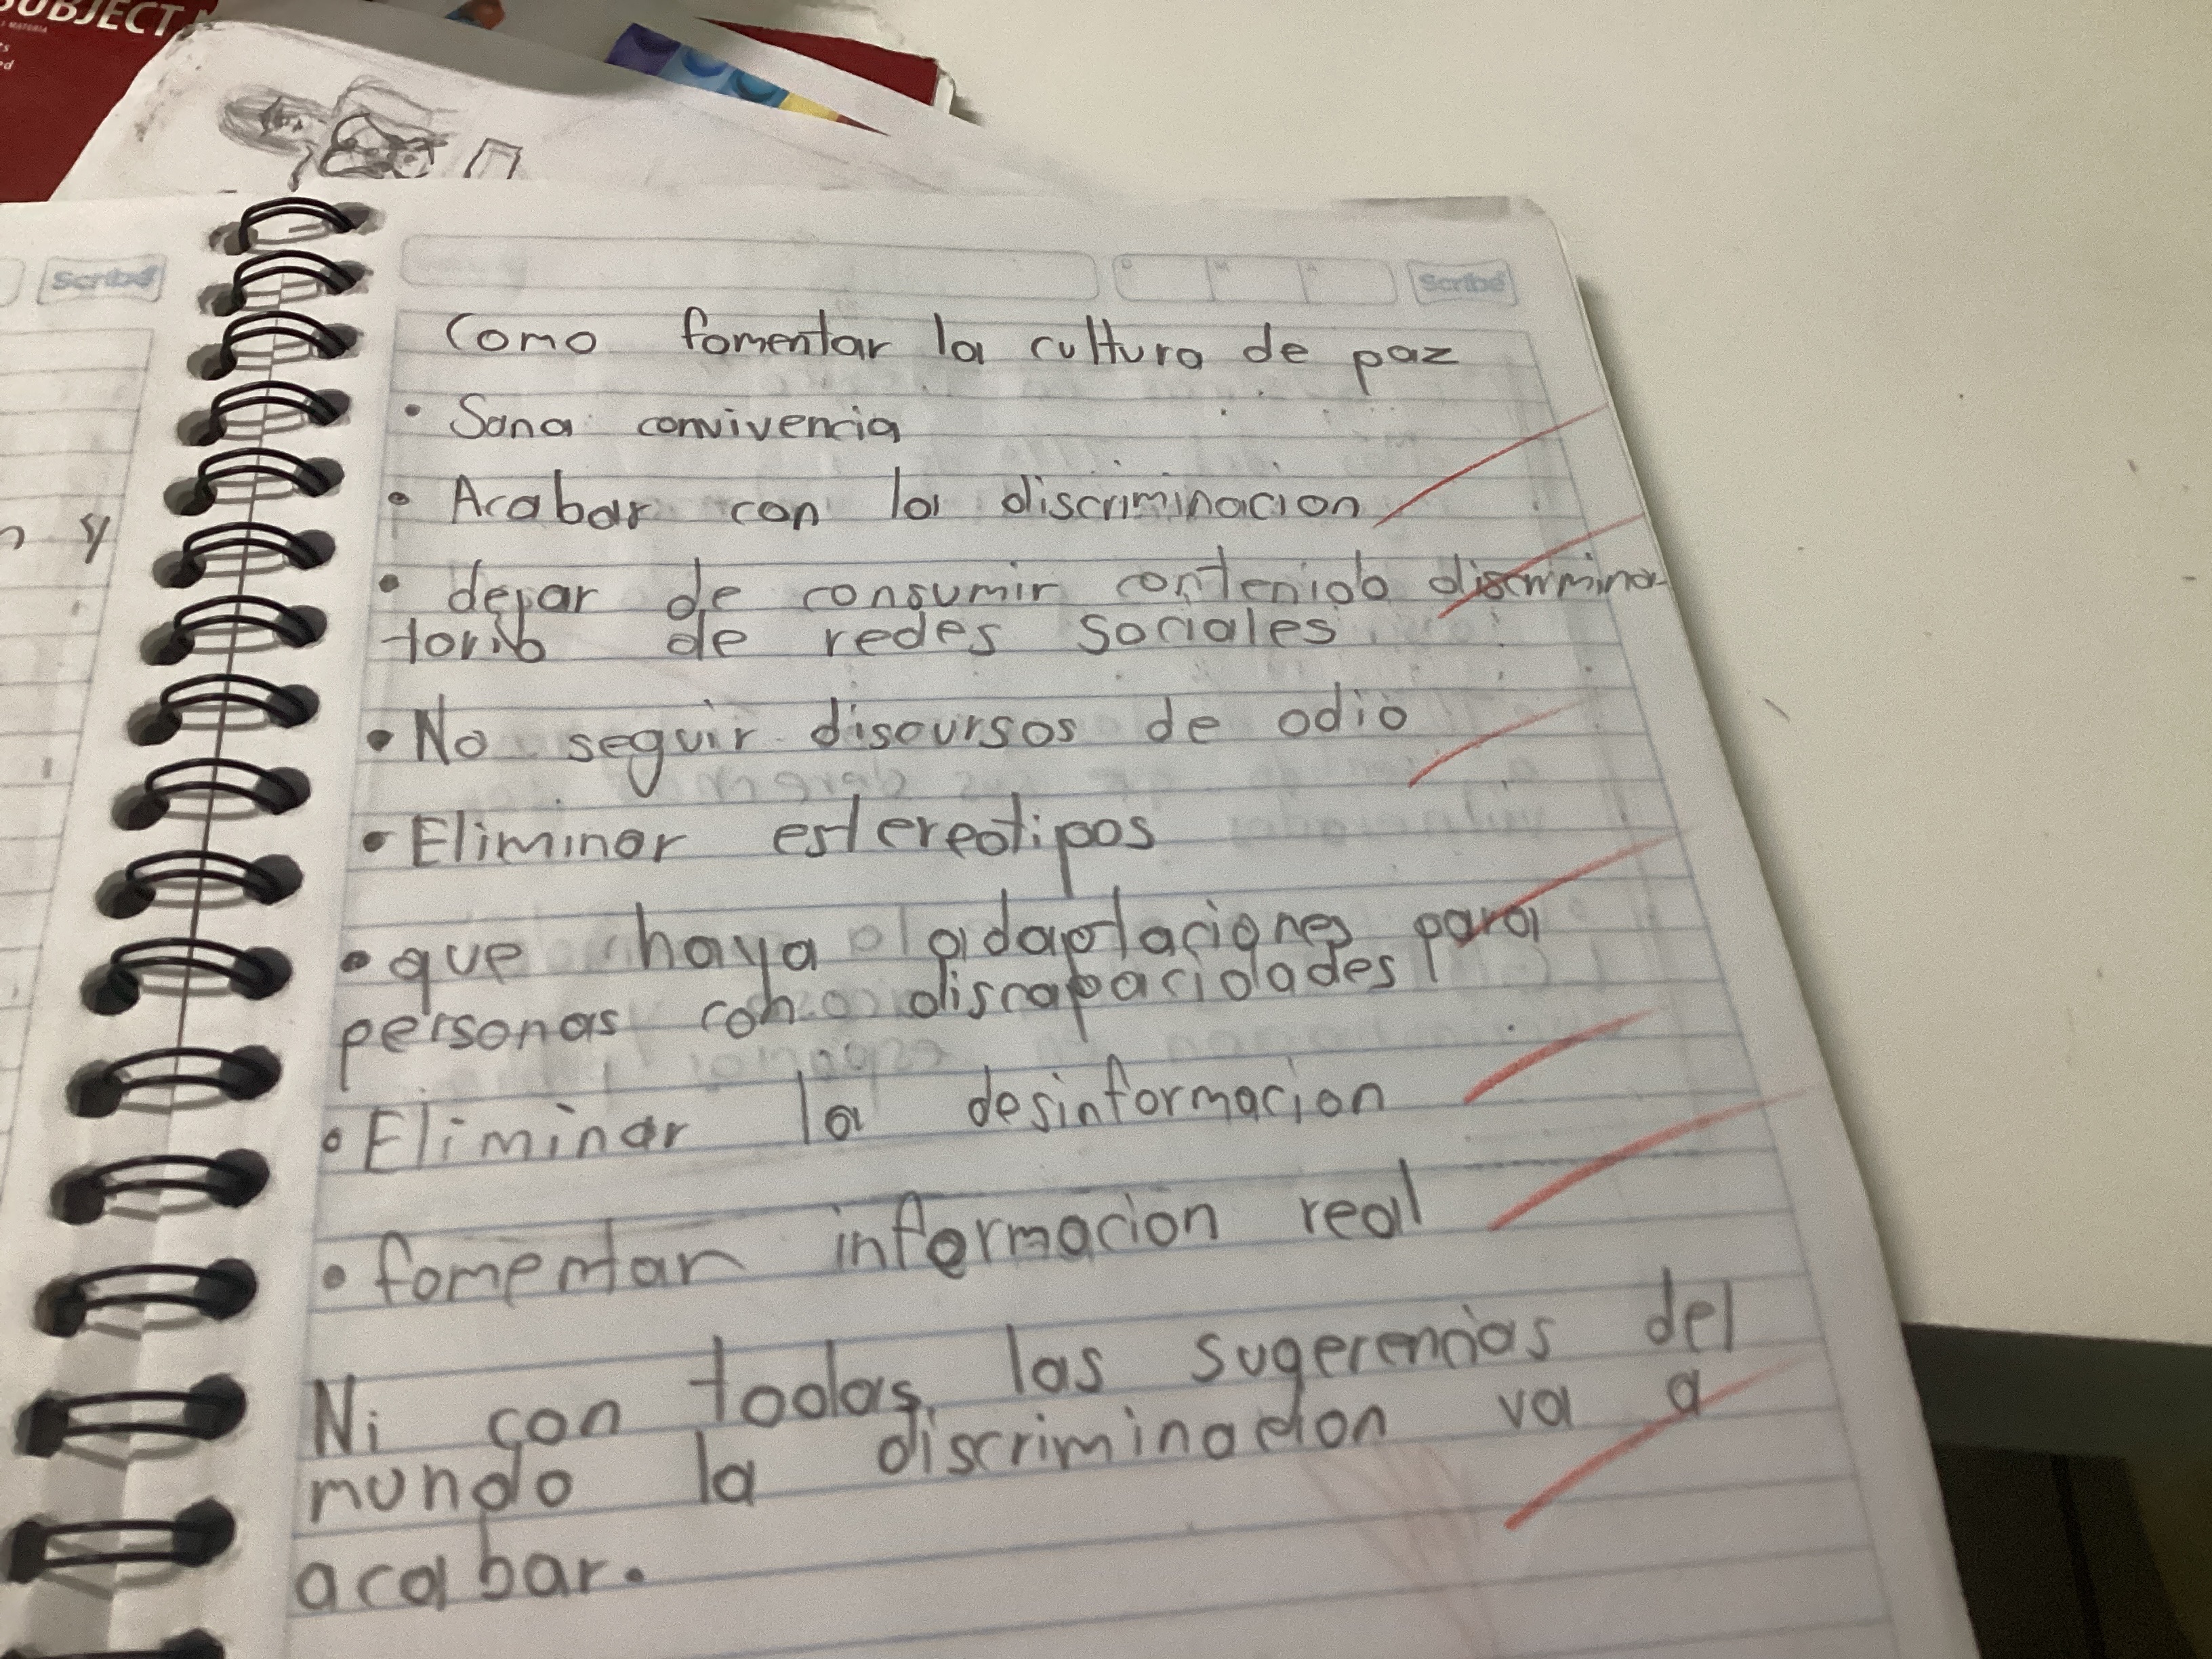 SUBJECT
MATERIA
Scribe
D
M
A
Scribe
Como fomentar la cultura de paz
• Sana convivencia
• Acabar con la discriminacion
• dejar de consumir contenido discrimina
torio de redes sociales
• No seguir discursos de odio
• Eliminar estereotipos
• que haya adaptaciones para
personas con discapacidades
• Eliminar la desinformacion
• fomentar informacion real
Ni con todas las sugerencias del
mundo la discriminacion va a
acabar.
y